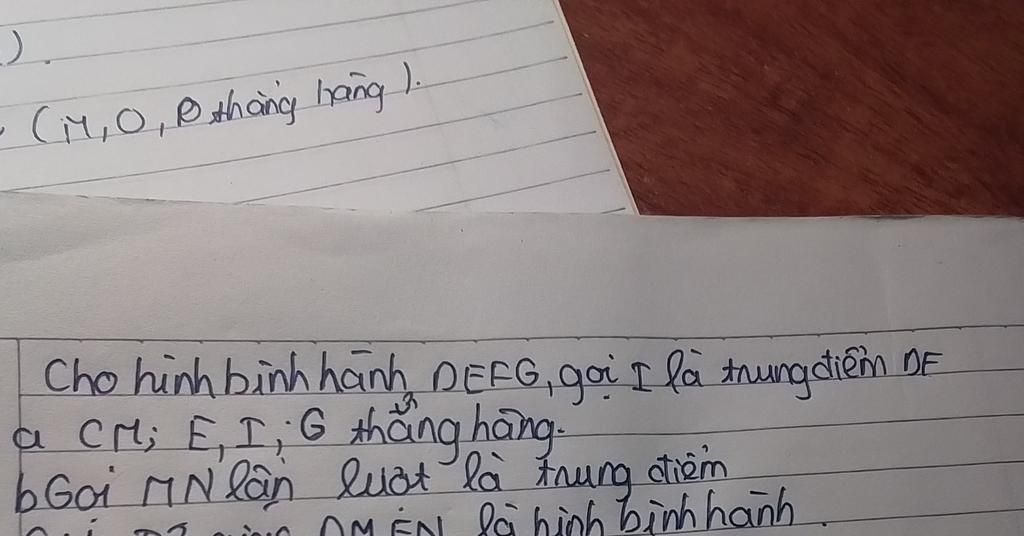 ).
(M, O, P thẳng hàng).
Cho hình bình hành DEFG, gọi I là trung điểm DF
a CM; E, I, G thẳng hàng.
b Gọi MN lần lượt là trung điểm
DMEN là hình bình hành.